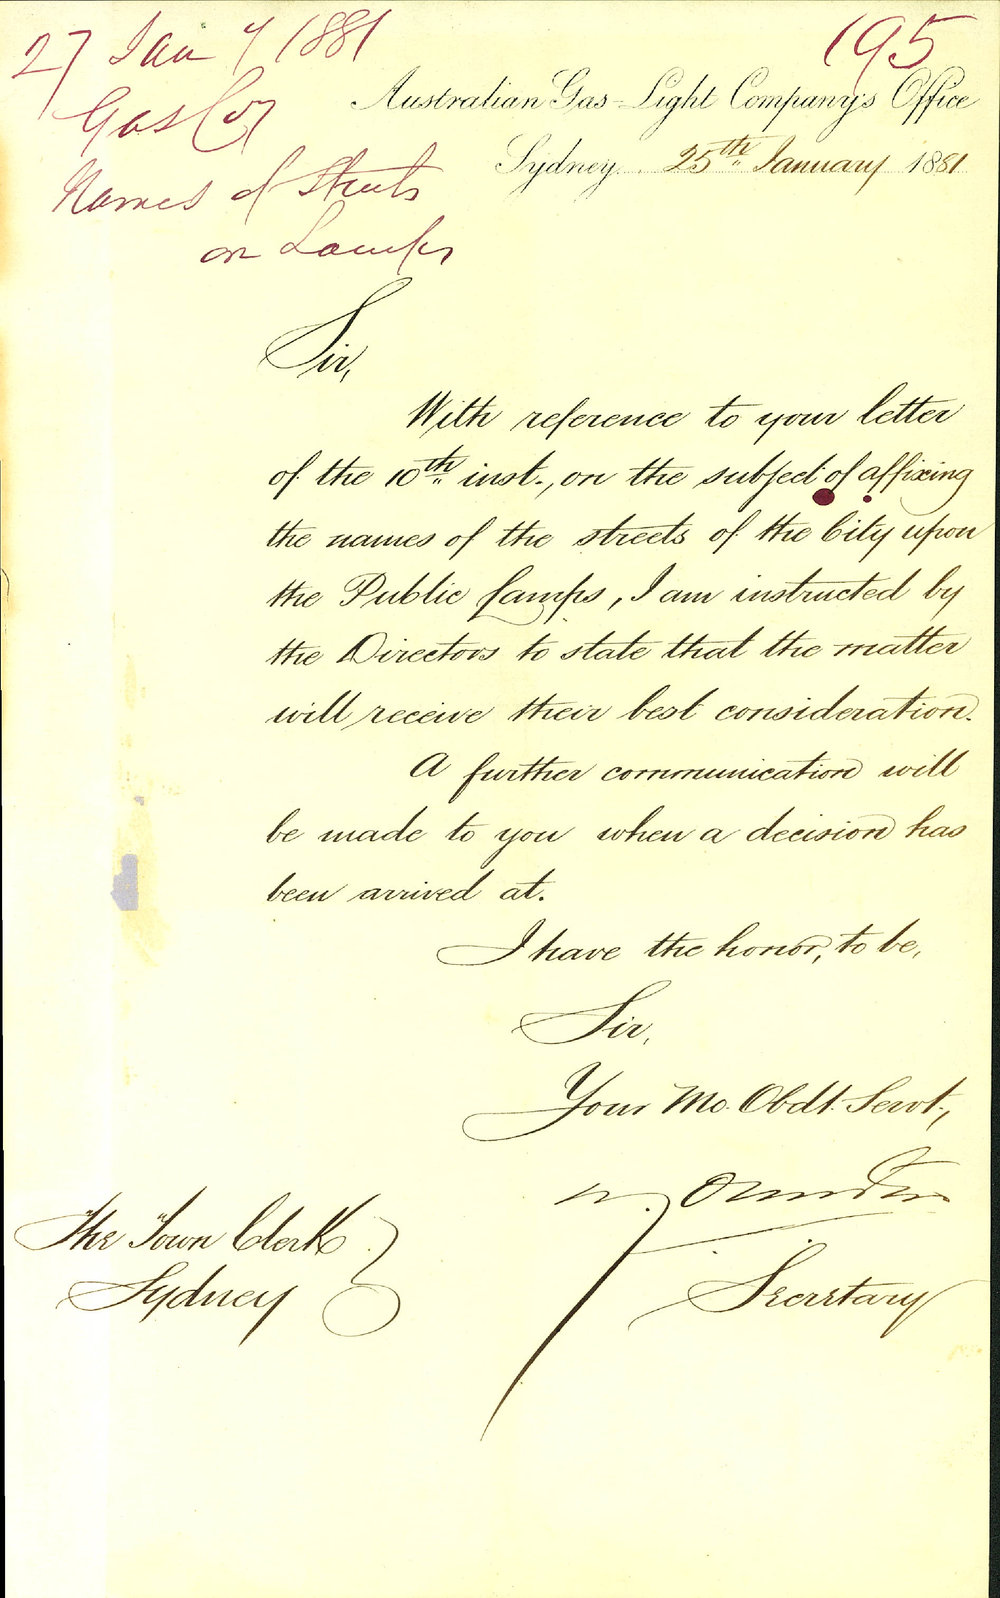 27 Jany 1881
195
Gas Coy
Names of Streets
on Lamps
Australian Gas-Light Company's Office
Sydney 25th January 1881
Sir,
With reference to your letter
of the 10th inst., on the subject of affixing
the names of the streets of the City upon
the Public Lamps, I am instructed by
the Directors to state that the matter
will receive their best consideration.
A further communication will
be made to you when a decision has
been arrived at.
I have the honor, to be,
Sir,
Your Mo. Obdt. Servt.,
Secretary
The Town Clerk
Sydney